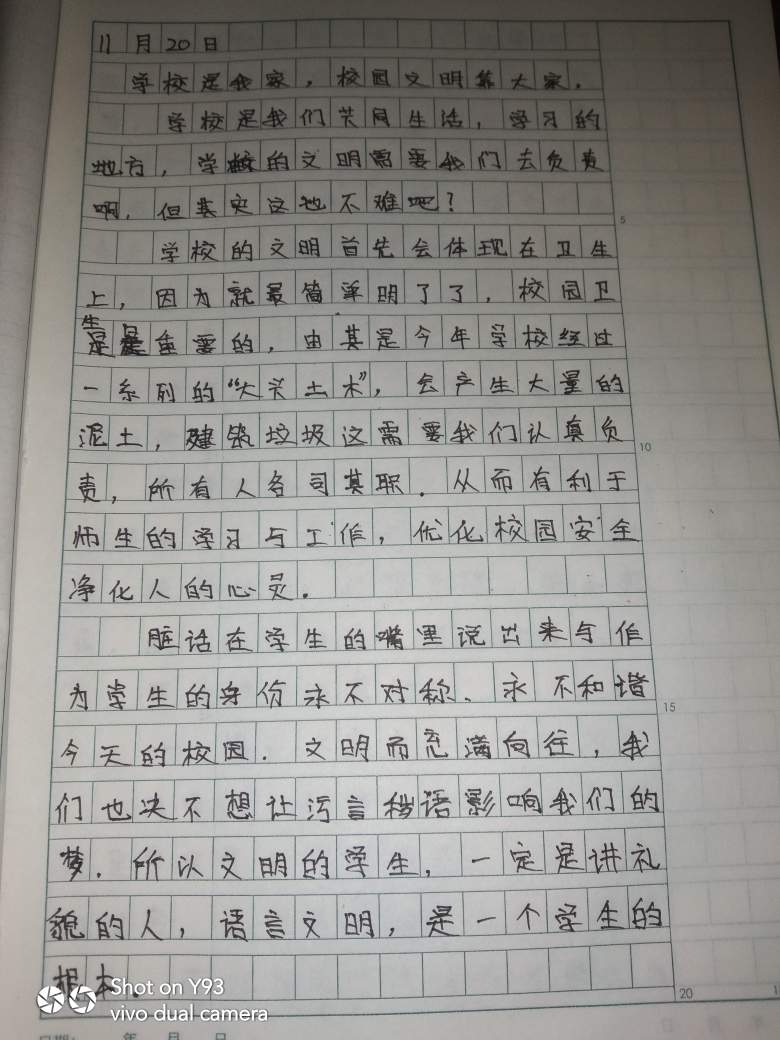 11月20日
学校是我家，校园文明靠大家。
学校是我们共同生活，学习的
地方，学校的文明需要我们去负责
啊，但其实这也不难吧？
学校的文明首先会体现在卫生
上，因为就最简单明了了，校园卫
生是重要的，由其是今年学校经过
一系列的“大兴土木”，会产生大量的
泥土，建筑垃圾这需要我们认真负
责，所有人各司其职．从而有利于
师生的学习与工作，优化校园安全
净化人的心灵．
脏话在学生的嘴里说出来与作
为学生的身份永不对称、永不和谐
今天的校园．文明而充满向往，我
们也决不想让污言秽语影响我们的
梦．所以文明的学生，一定是讲礼
貌的人，语言文明，是一个学生的
根本．
5
10
15
20
Shot on Y93
vivo dual camera
年 月 日